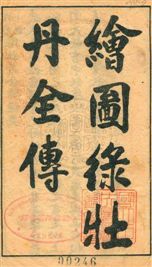 繪圖綠牡
丹全傳
99246